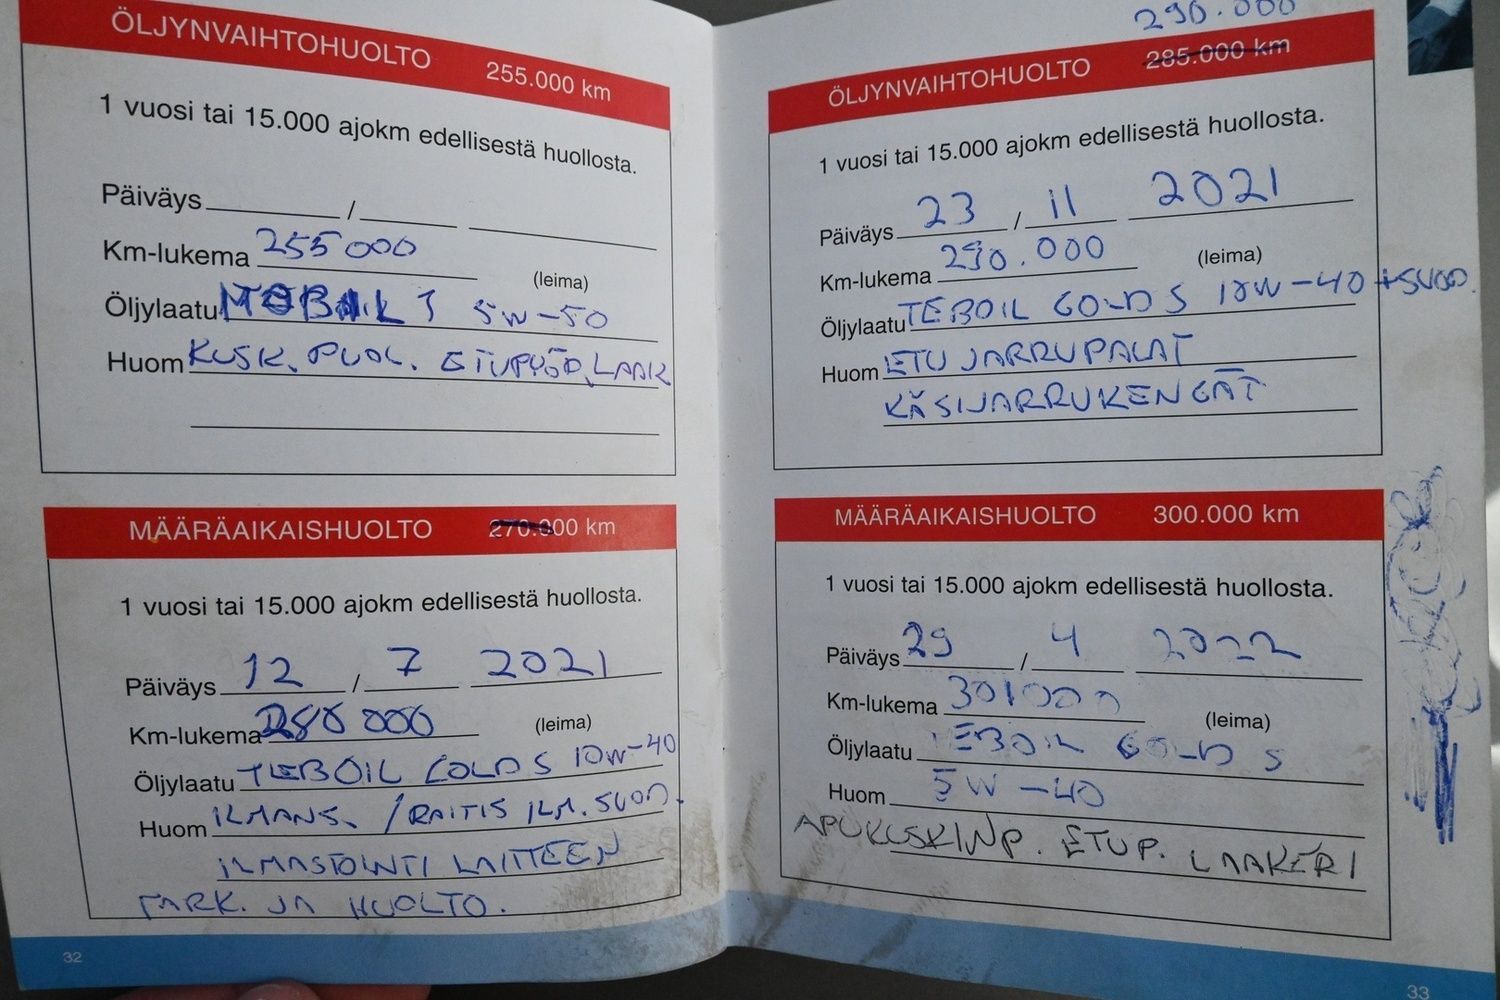 ÖLJYNVAIHTOHUOLTO 255.000 km
1 vuosi tai 15.000 ajokm edellisestä huollosta.
Päiväys / 
Km-lukema 255 000 (leima)
Öljylaatu MOBIL 1 5W-50
Huom KUSK. PUOL. ETUPYÖR. LAAK
MÄÄRÄAIKAISHUOLTO 270.000 km
1 vuosi tai 15.000 ajokm edellisestä huollosta.
Päiväys 12 / 7 2021
Km-lukema 280 000 (leima)
Öljylaatu TEBOIL GOLD S 10W-40
Huom ILMANS. / RAITIS ILM. SUOD.
ILMASTOINTI LAITTEEN
TARK. JA HUOLTO.
32
290.000
ÖLJYNVAIHTOHUOLTO 285.000 km
1 vuosi tai 15.000 ajokm edellisestä huollosta.
Päiväys 23 / 11 2021
Km-lukema 290.000 (leima)
Öljylaatu TEBOIL GOLD S 10W-40 +SUOD.
Huom ETU JARRUPALAT
KÄSIJARRUKENGÄT
MÄÄRÄAIKAISHUOLTO 300.000 km
1 vuosi tai 15.000 ajokm edellisestä huollosta.
Päiväys 29 / 4 2022
Km-lukema 301000 (leima)
Öljylaatu TEBOIL GOLD S
Huom 5W-40
APUKUSKINP. ETUP. LAAKERI
33